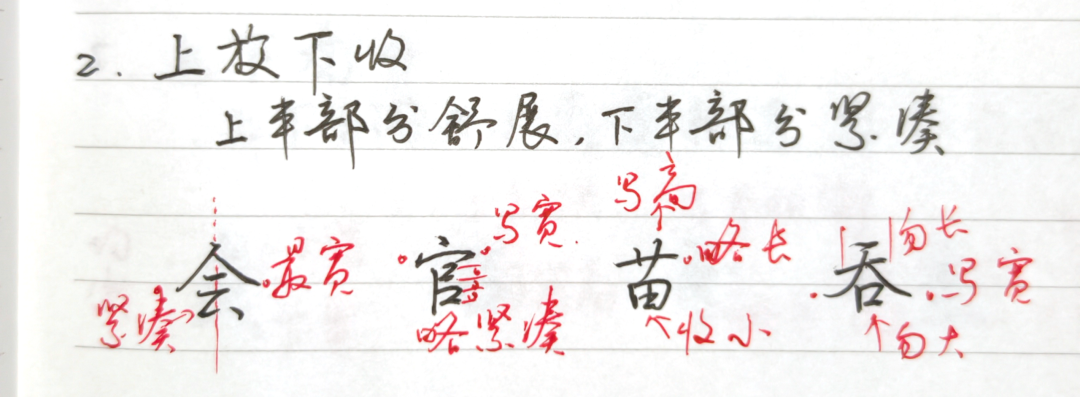 2. 上放下收
上半部分舒展,下半部分紧凑
写高
写宽
会 最宽 官 苗 略长 吞 勿长
写宽
紧凑 略紧凑 收小 勿大